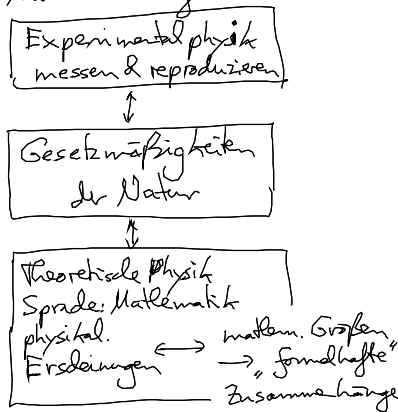 Experimentalphysik
messen & reproduzieren
Gesetzmäßigkeiten
der Natur
Theoretische Physik
Sprache: Mathematik
physikal.
Erscheinungen ↔ mathem. Größen
→ "formelhafte"
Zusammenhänge